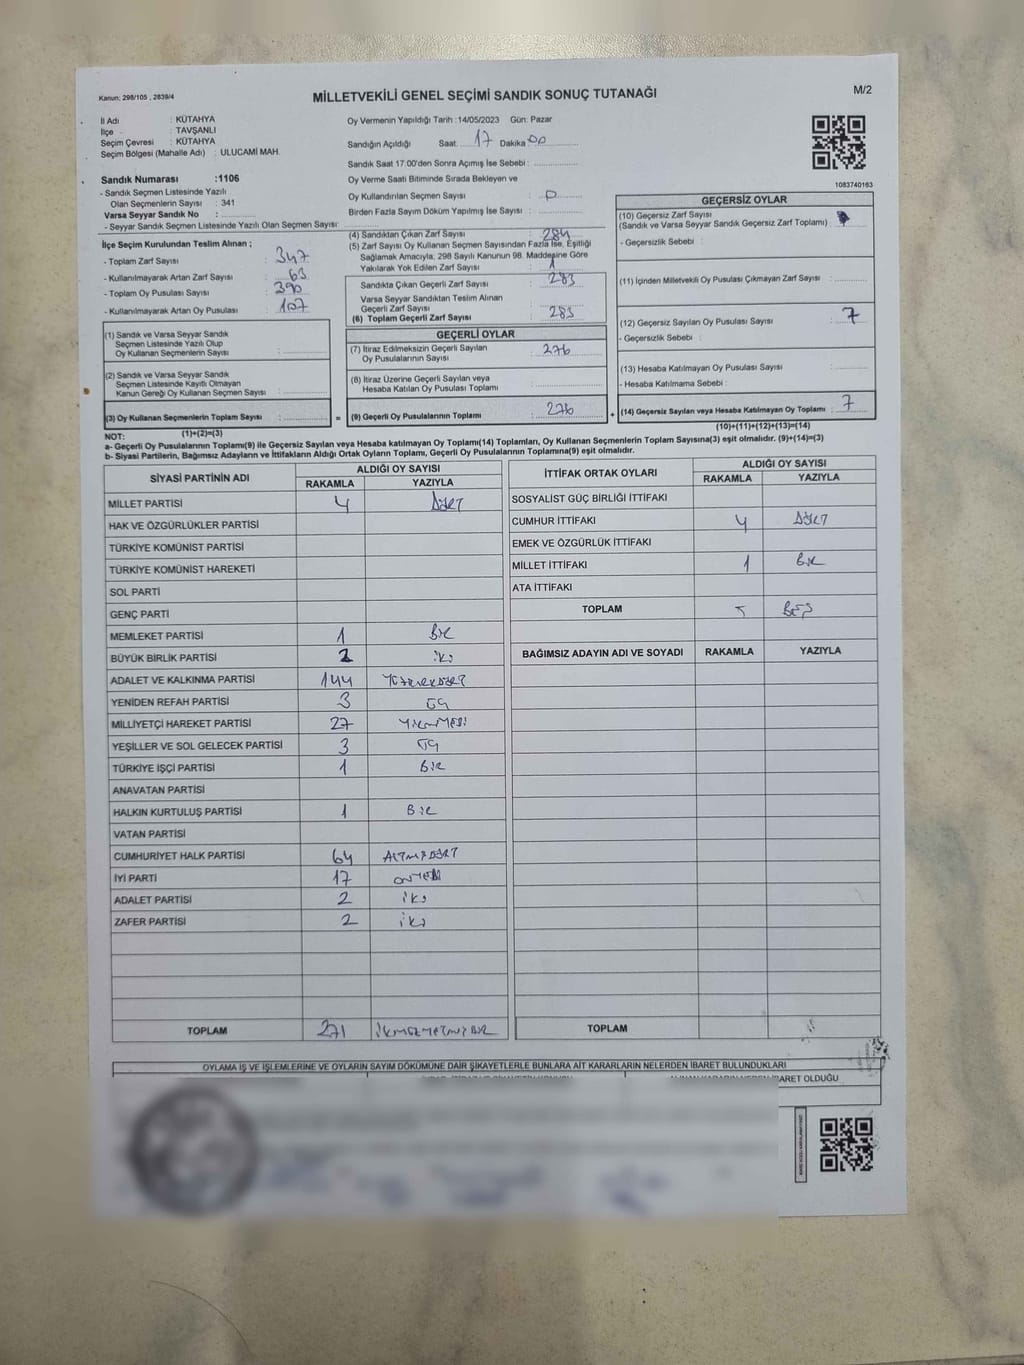 Kanun: 298/105 , 2839/4
MİLLETVEKİLİ GENEL SEÇİMİ SANDIK SONUÇ TUTANAĞI
M/2
İl Adı : KÜTAHYA
İlçe : TAVŞANLI
Seçim Çevresi : KÜTAHYA
Seçim Bölgesi (Mahalle Adı) : ULUCAMİ MAH.
Oy Vermenin Yapıldığı Tarih :14/05/2023 Gün: Pazar
Sandığın Açıldığı Saat: 17 Dakika 00
Sandık Saat 17:00'den Sonra Açımış İse Sebebi :
Oy Verme Saati Bitiminde Sırada Bekleyen ve
Oy Kullandırılan Seçmen Sayısı :
Birden Fazla Sayım Döküm Yapılmış İse Sayısı :
1083740163
Sandık Numarası :1106
- Sandık Seçmen Listesinde Yazılı
Olan Seçmenlerin Sayısı : 341
Varsa Seyyar Sandık No :
- Seyyar Sandık Seçmen Listesinde Yazılı Olan Seçmen Sayısı
İlçe Seçim Kurulundan Teslim Alınan ;
- Toplam Zarf Sayısı : 347
- Kullanılmayarak Artan Zarf Sayısı : 63
- Toplam Oy Pusulası Sayısı : 390
- Kullanılmayarak Artan Oy Pusulası : 107
(1) Sandık ve Varsa Seyyar Sandık
Seçmen Listesinde Yazılı Olup
Oy Kullanan Seçmenlerin Sayısı :
(2) Sandık ve Varsa Seyyar Sandık
Seçmen Listesinde Kayıtlı Olmayan
Kanun Gereği Oy Kullanan Seçmen Sayısı :
(3) Oy Kullanan Seçmenlerin Toplam Sayısı :
(1)+(2)=(3)
=
(4) Sandıktan Çıkan Zarf Sayısı : 284
(5) Zarf Sayısı Oy Kullanan Seçmen Sayısından Fazla İse, Eşitliği
Sağlamak Amacıyla, 298 Sayılı Kanunun 98. Maddesine Göre
Yakılarak Yok Edilen Zarf Sayısı : 1
Sandıkta Çıkan Geçerli Zarf Sayısı : 283
Varsa Seyyar Sandıktan Teslim Alınan
Geçerli Zarf Sayısı :
(6) Toplam Geçerli Zarf Sayısı : 283
GEÇERLİ OYLAR
(7) İtiraz Edilmeksizin Geçerli Sayılan
Oy Pusulalarının Sayısı : 276
(8) İtiraz Üzerine Geçerli Sayılan veya
Hesaba Katılan Oy Pusulası Toplamı :
(9) Geçerli Oy Pusulalarının Toplamı : 276
+
GEÇERSİZ OYLAR
(10) Geçersiz Zarf Sayısı
(Sandık ve Varsa Seyyar Sandık Geçersiz Zarf Toplamı) :
- Geçersizlik Sebebi :
(11) İçinden Milletvekili Oy Pusulası Çıkmayan Zarf Sayısı :
(12) Geçersiz Sayılan Oy Pusulası Sayısı : 7
- Geçersizlik Sebebi :
(13) Hesaba Katılmayan Oy Pusulası Sayısı :
- Hesaba Katılmama Sebebi :
(14) Geçersiz Sayılan veya Hesaba Katılmayan Oy Toplamı : 7
(10)+(11)+(12)+(13)=(14)
NOT:
a- Geçerli Oy Pusulalarının Toplamı(9) ile Geçersiz Sayılan veya Hesaba katılmayan Oy Toplamı(14) Toplamları, Oy Kullanan Seçmenlerin Toplam Sayısına(3) eşit olmalıdır. (9)+(14)=(3)
b- Siyasi Partilerin, Bağımsız Adayların ve İttifakların Aldığı Ortak Oyların Toplamı, Geçerli Oy Pusulalarının Toplamına(9) eşit olmalıdır.
SİYASİ PARTİNİN ADI
ALDIĞI OY SAYISI
RAKAMLA YAZIYLA
MİLLET PARTİSİ 4 DÖRT
HAK VE ÖZGÜRLÜKLER PARTİSİ
TÜRKİYE KOMÜNİST PARTİSİ
TÜRKİYE KOMÜNİST HAREKETİ
SOL PARTİ
GENÇ PARTİ
MEMLEKET PARTİSİ 1 BİR
BÜYÜK BİRLİK PARTİSİ 2 İKİ
ADALET VE KALKINMA PARTİSİ 144 YÜZKIRKDÖRT
YENİDEN REFAH PARTİSİ 3 ÜÇ
MİLLİYETÇİ HAREKET PARTİSİ 27 YİRMİYEDİ
YEŞİLLER VE SOL GELECEK PARTİSİ 3 ÜÇ
TÜRKİYE İŞÇİ PARTİSİ 1 BİR
ANAVATAN PARTİSİ
HALKIN KURTULUŞ PARTİSİ 1 BİR
VATAN PARTİSİ
CUMHURİYET HALK PARTİSİ 64 ALTMIŞDÖRT
İYİ PARTİ 17 ONYEDİ
ADALET PARTİSİ 2 İKİ
ZAFER PARTİSİ 2 İKİ
TOPLAM 271 İKİYÜZYETMİŞBİR
İTTİFAK ORTAK OYLARI
ALDIĞI OY SAYISI
RAKAMLA YAZIYLA
SOSYALİST GÜÇ BİRLİĞİ İTTİFAKI
CUMHUR İTTİFAKI 4 DÖRT
EMEK VE ÖZGÜRLÜK İTTİFAKI
MİLLET İTTİFAKI 1 BİR
ATA İTTİFAKI
TOPLAM 5 BEŞ
BAĞIMSIZ ADAYIN ADI VE SOYADI RAKAMLA YAZIYLA
TOPLAM
OYLAMA İŞ VE İŞLEMLERİNE VE OYLARIN SAYIM DÖKÜMÜNE DAİR ŞİKAYETLERLE BUNLARA AİT KARARLARIN NELERDEN İBARET BULUNDUKLARI
İBARET OLDUĞU